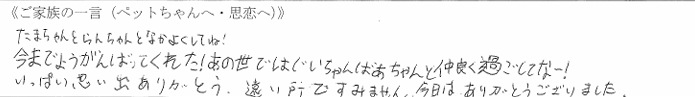 《ご家族の一言（ペットちゃんへ・思恋へ）》
たまちゃんとらんちゃんとなかよくしてね！
今までようがんばってくれた！あの世ではじいちゃんばあちゃんと仲良く過ごしてなー！
いっぱい思い出ありがとう、遠い所ですみません、今日はありがとうございました。